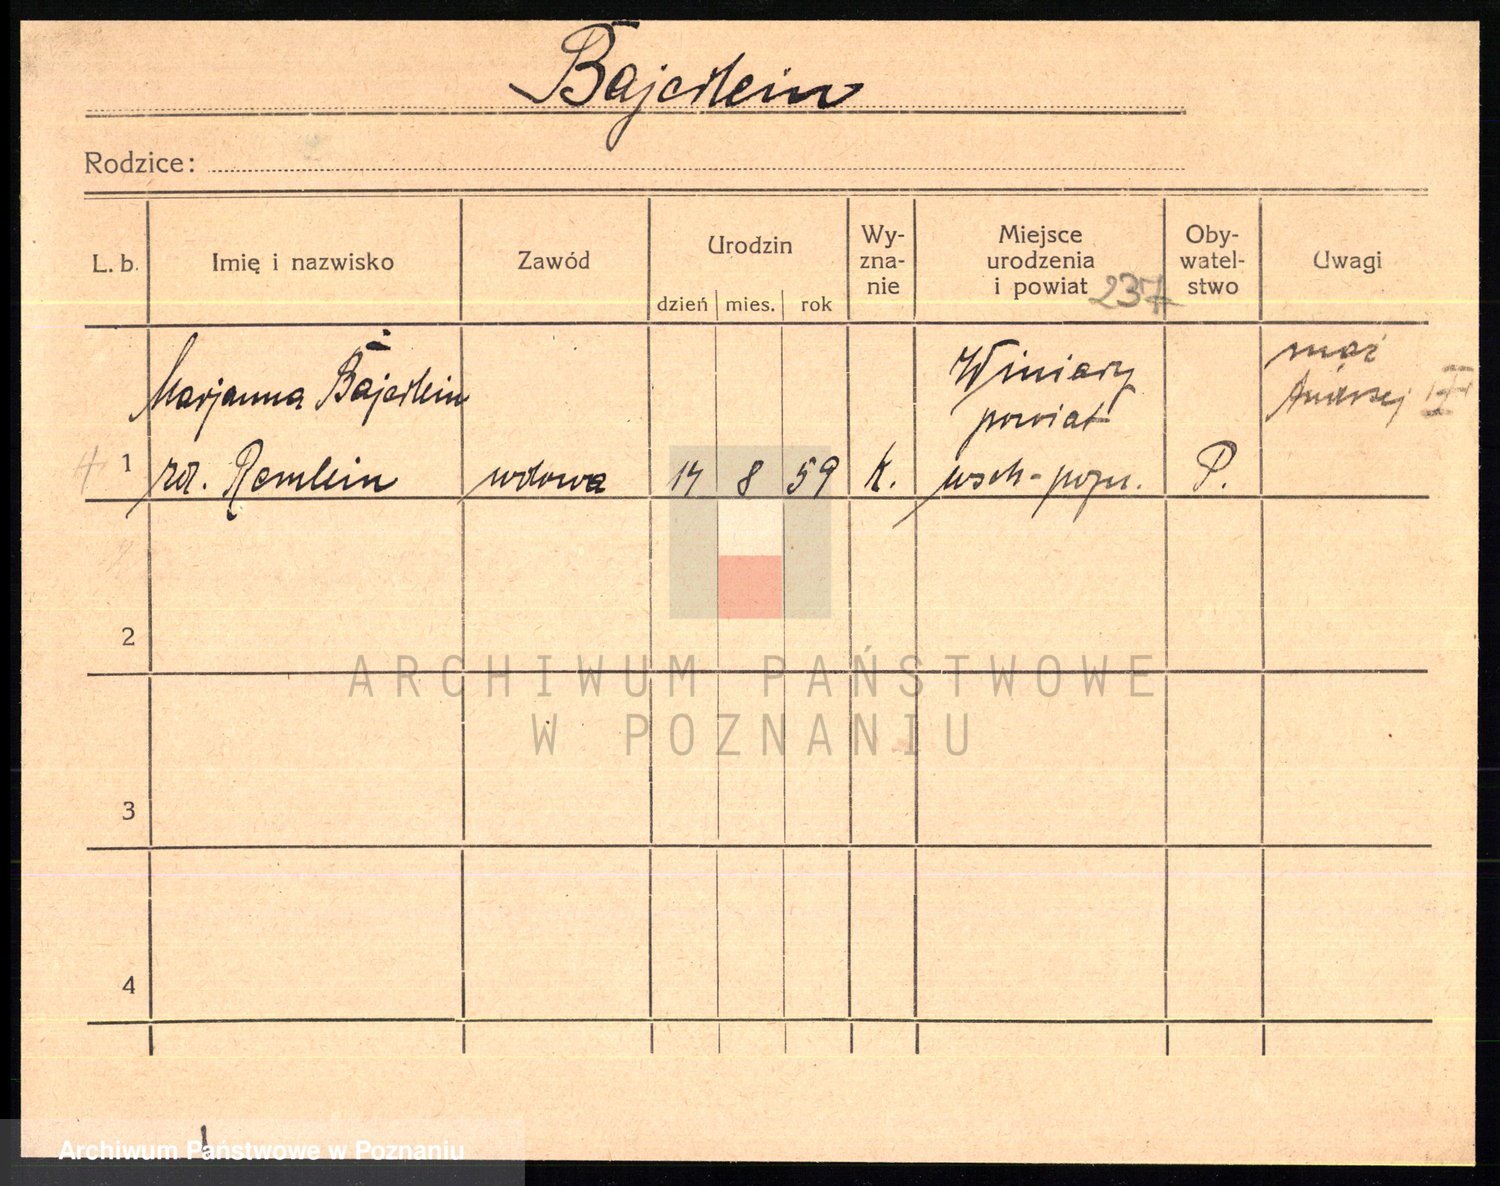 Bajerlein
Rodzice:
L. b.
Imię i nazwisko
Zawód
Urodzin
dzień mies. rok
Wy-
zna-
nie
Miejsce
urodzenia
i powiat
237
Oby-
watel-
stwo
Uwagi
Marjanna Bajerlein
1 rd. Remlein wdowa 14 8 59 K.
Winiary
powiat
wsch-pozn.
P.
mąż
Andrzej
2
3
4
ARCHIWUM PAŃSTWOWE
W POZNANIU
Archiwum Państwowe w Poznaniu